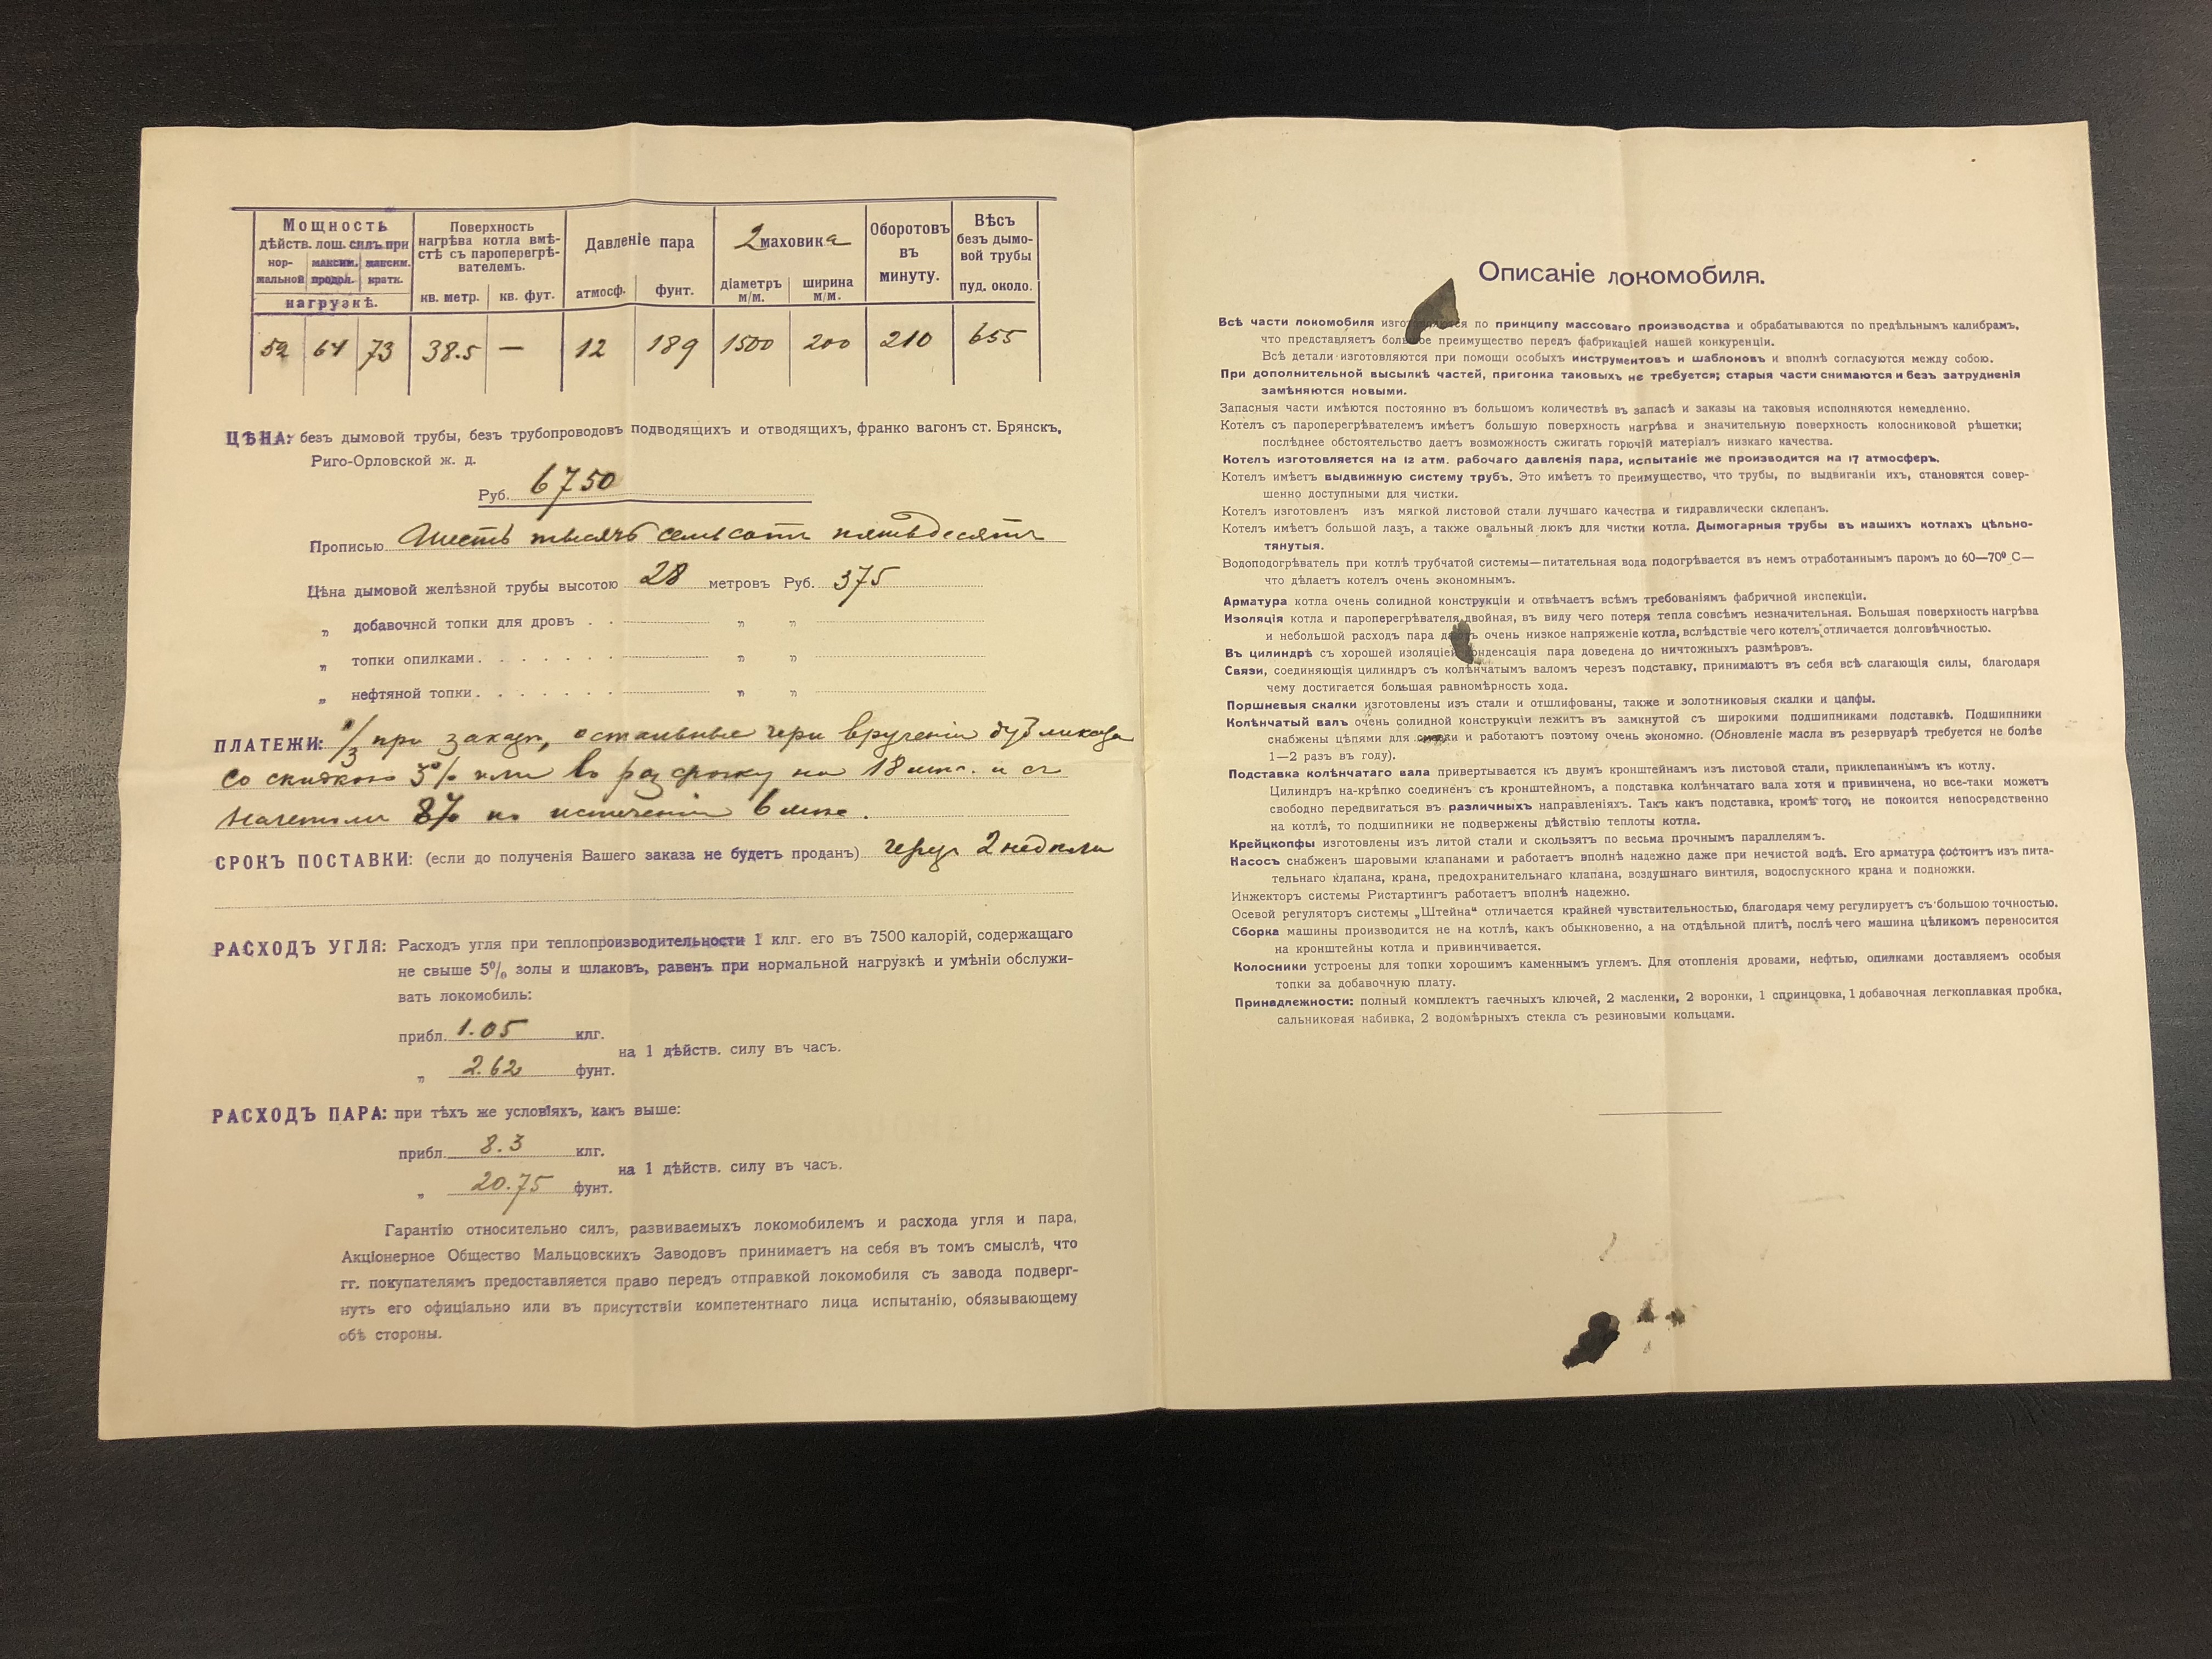 Мощность
дѣйств. лош. силъ при
нор-
мальной
максим.
продол.
максим.
кратк.
нагрузкѣ.
Поверхность
нагрѣва котла вмѣ-
стѣ съ пароперегрѣ-
вателемъ.
кв. метр. кв. фут.
Давленіе пара
атмосф. фунт.
2 маховика
діаметръ
м/м.
ширина
м/м.
Оборотовъ
въ
минуту.
Вѣсъ
безъ дымо-
вой трубы
пуд. около.
52 64 73 38.5 — 12 189 1500 200 210 655
ЦѢНА: безъ дымовой трубы, безъ трубопроводовъ подводящихъ и отводящихъ, франко вагонъ ст. Брянскъ,
Риго-Орловской ж. д.
Руб. 6750
Прописью Шесть тысячъ семьсотъ пятьдесятъ
Цѣна дымовой желѣзной трубы высотою 28 метровъ Руб. 375
„ добавочной топки для дровъ . . „ „
„ топки опилками . . . . . . . „ „
„ нефтяной топки . . . . . . . „ „
ПЛАТЕЖИ: 1/3 при заказѣ, остальные при врученіи дубликата
со скидкою 5% или въ разсрочку на 18 мѣс. и съ
8% по истеченіи 6 мѣс.
СРОКЪ ПОСТАВКИ: (если до полученія Вашего заказа не будетъ проданъ) черезъ 2 недѣли
РАСХОДЪ УГЛЯ: Расходъ угля при теплопроизводительности 1 клг. его въ 7500 калорій, содержащаго
не свыше 5% золы и шлаковъ, равенъ при нормальной нагрузкѣ и умѣніи обслужи-
вать локомобиль:
прибл. 1.05 клг.
на 1 дѣйств. силу въ часъ.
„ 2.62 фунт.
РАСХОДЪ ПАРА: при тѣхъ же условіяхъ, какъ выше:
прибл. 8.3 клг.
на 1 дѣйств. силу въ часъ.
„ 20.75 фунт.
Гарантію относительно силъ, развиваемыхъ локомобилемъ и расхода угля и пара,
Акціонерное Общество Мальцовскихъ Заводовъ принимаетъ на себя въ томъ смыслѣ, что
гг. покупателямъ предоставляется право передъ отправкой локомобиля съ завода подверг-
нуть его офиціально или въ присутствіи компетентнаго лица испытанію, обязывающему
обѣ стороны.
Описаніе локомобиля.
Всѣ части локомобиля изготовляются по принципу массоваго производства и обрабатываются по предѣльнымъ калибрамъ,
что представляетъ большое преимущество передъ фабрикаціей нашей конкуренціи.
Всѣ детали изготовляются при помощи особыхъ инструментовъ и шаблоновъ и вполнѣ согласуются между собою.
При дополнительной высылкѣ частей, пригонка таковыхъ не требуется; старыя части снимаются и безъ затрудненія
замѣняются новыми.
Запасныя части имѣются постоянно въ большомъ количествѣ въ запасѣ и заказы на таковыя исполняются немедленно.
Котелъ съ пароперегрѣвателемъ имѣетъ большую поверхность нагрѣва и значительную поверхность колосниковой рѣшетки;
послѣднее обстоятельство даетъ возможность сжигать горючій матеріалъ низкаго качества.
Котелъ изготовляется на 12 атм. рабочаго давленія пара, испытаніе же производится на 17 атмосферъ.
Котелъ имѣетъ выдвижную систему трубъ. Это имѣетъ то преимущество, что трубы, по выдвиганіи ихъ, становятся совер-
шенно доступными для чистки.
Котелъ изготовленъ изъ мягкой листовой стали лучшаго качества и гидравлически склепанъ.
Котелъ имѣетъ большой лазъ, а также овальный люкъ для чистки котла. Дымогарныя трубы въ нашихъ котлахъ цѣльно-
тянутыя.
Водоподогрѣватель при котлѣ трубчатой системы—питательная вода подогрѣвается въ немъ отработаннымъ паромъ до 60—70⁰ С—
что дѣлаетъ котелъ очень экономнымъ.
Арматура котла очень солидной конструкціи и отвѣчаетъ всѣмъ требованіямъ фабричной инспекціи.
Изоляція котла и пароперегрѣвателя двойная, въ виду чего потеря тепла совсѣмъ незначительная. Большая поверхность нагрѣва
и небольшой расходъ пара даютъ очень низкое напряженіе котла, вслѣдствіе чего котелъ отличается долговѣчностью.
Въ цилиндрѣ съ хорошей изоляціей конденсація пара доведена до ничтожныхъ размѣровъ.
Связи, соединяющія цилиндръ съ колѣнчатымъ валомъ черезъ подставку, принимаютъ въ себя всѣ слагающія силы, благодаря
чему достигается большая равномѣрность хода.
Поршневыя скалки изготовлены изъ стали и отшлифованы, также и золотниковыя скалки и цапфы.
Колѣнчатый валъ очень солидной конструкціи лежитъ въ замкнутой съ широкими подшипниками подставкѣ. Подшипники
снабжены цѣпями для и работаютъ поэтому очень экономно. (Обновленіе масла въ резервуарѣ требуется не болѣе
1—2 разъ въ году).
Подставка колѣнчатаго вала привертывается къ двумъ кронштейнамъ изъ листовой стали, приклепаннымъ къ котлу.
Цилиндръ на-крѣпко соединенъ съ кронштейномъ, а подставка колѣнчатаго вала хотя и привинчена, но все-таки можетъ
свободно передвигаться въ различныхъ направленіяхъ. Такъ какъ подставка, кромѣ того, не покоится непосредственно
на котлѣ, то подшипники не подвержены дѣйствію теплоты котла.
Крейцкопфы изготовлены изъ литой стали и скользятъ по весьма прочнымъ параллелямъ.
Насосъ снабженъ шаровыми клапанами и работаетъ вполнѣ надежно даже при нечистой водѣ. Его арматура состоитъ изъ пита-
тельнаго клапана, крана, предохранительнаго клапана, воздушнаго винтиля, водоспускного крана и подножки.
Инжекторъ системы Ристартингъ работаетъ вполнѣ надежно.
Осевой регуляторъ системы „Штейна“ отличается крайней чувствительностью, благодаря чему регулируетъ съ большою точностью.
Сборка машины производится не на котлѣ, какъ обыкновенно, а на отдѣльной плитѣ, послѣ чего машина цѣликомъ переносится
на кронштейны котла и привинчивается.
Колосники устроены для топки хорошимъ каменнымъ углемъ. Для отопленія дровами, нефтью, опилками доставляемъ особыя
топки за добавочную плату.
Принадлежности: полный комплектъ гаечныхъ ключей, 2 масленки, 2 воронки, 1 спринцовка, 1 добавочная легкоплавкая пробка,
сальниковая набивка, 2 водомѣрныхъ стекла съ резиновыми кольцами.